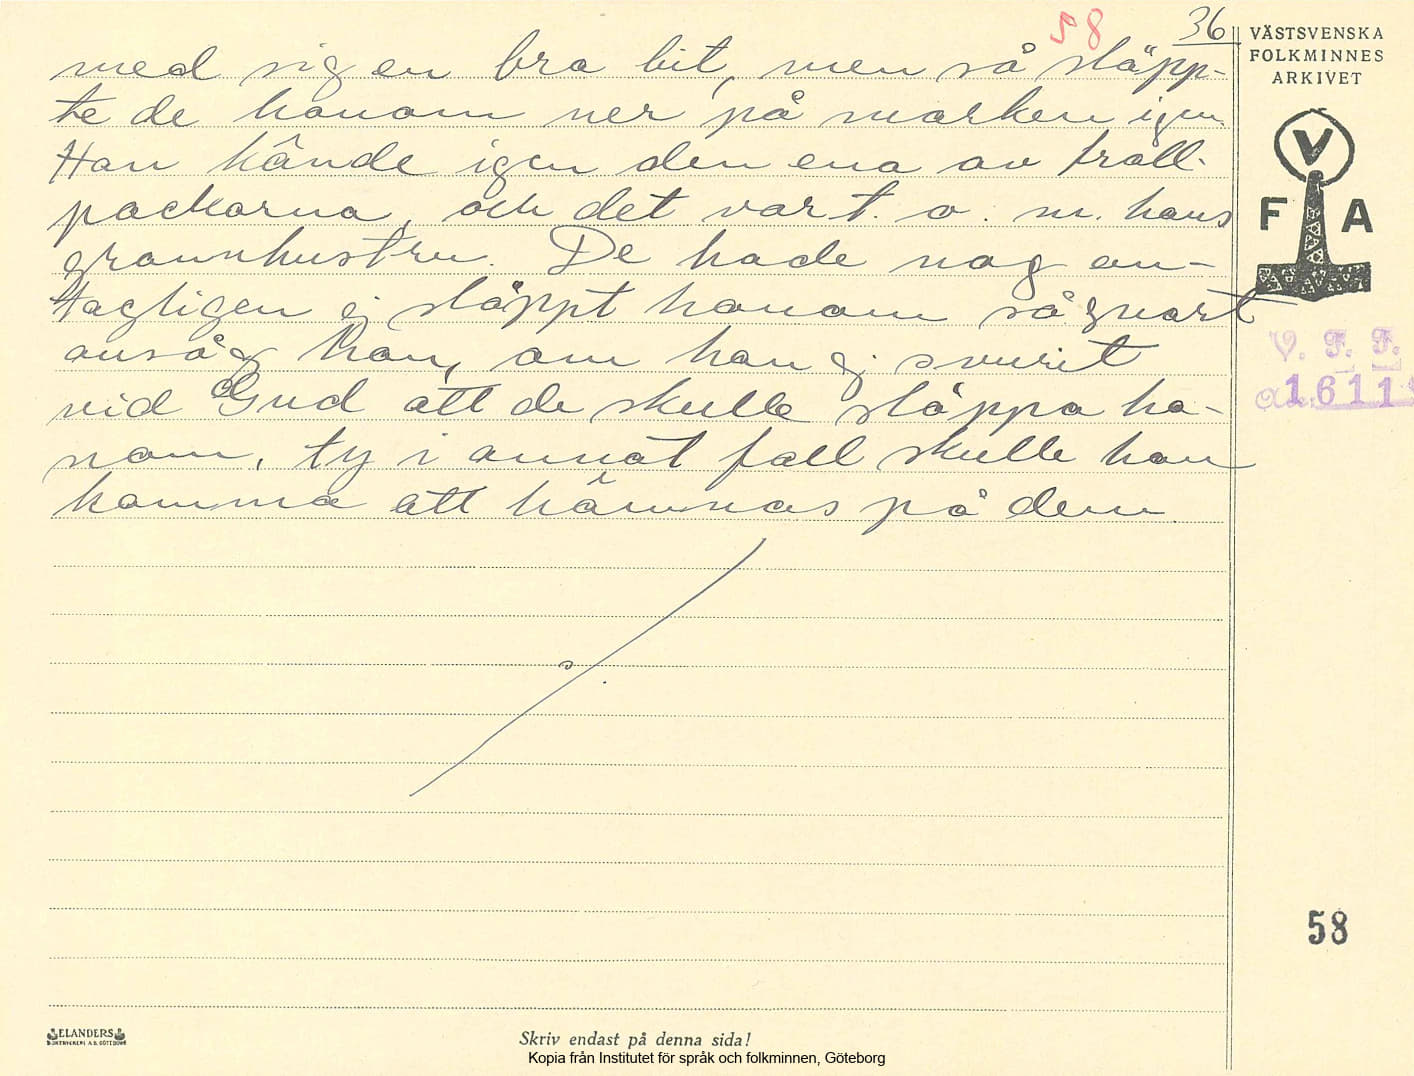 58 36
VÄSTSVENSKA
FOLKMINNES
ARKIVET
V
F A
V. F. F.
1611
med sig en bra bit, men så släpp-
te de honom ner på marken igen.
Han kände igen den ena av troll-
packorna, och det var t. o. m. hans
grannhustru. De hade nog an-
tagligen ej släppt honom så snart
ansåg han, om han ej svurit
vid Gud att de skulle släppa ho-
nom, ty i annat fall skulle han
komma att hämnas på dem
58
ELANDERS
BOKTRYCKERI A.B. GÖTEBORG
Skriv endast på denna sida!
Kopia från Institutet för språk och folkminnen, Göteborg